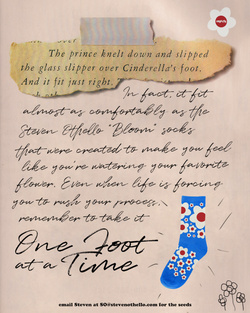 The prince knelt down and slipped
the glass slipper over Cinderella's foot.
And it fit just right.
In fact, it fit
almost as comfortably as the
Steven Othello "Bloom" socks
that were created to make you feel
like you're watering your favorite
flower. Even when life is forcing
you to rush your process,
remember to take it
One Foot
at a Time
email Steven at SO@stevenothello.com for the seeds